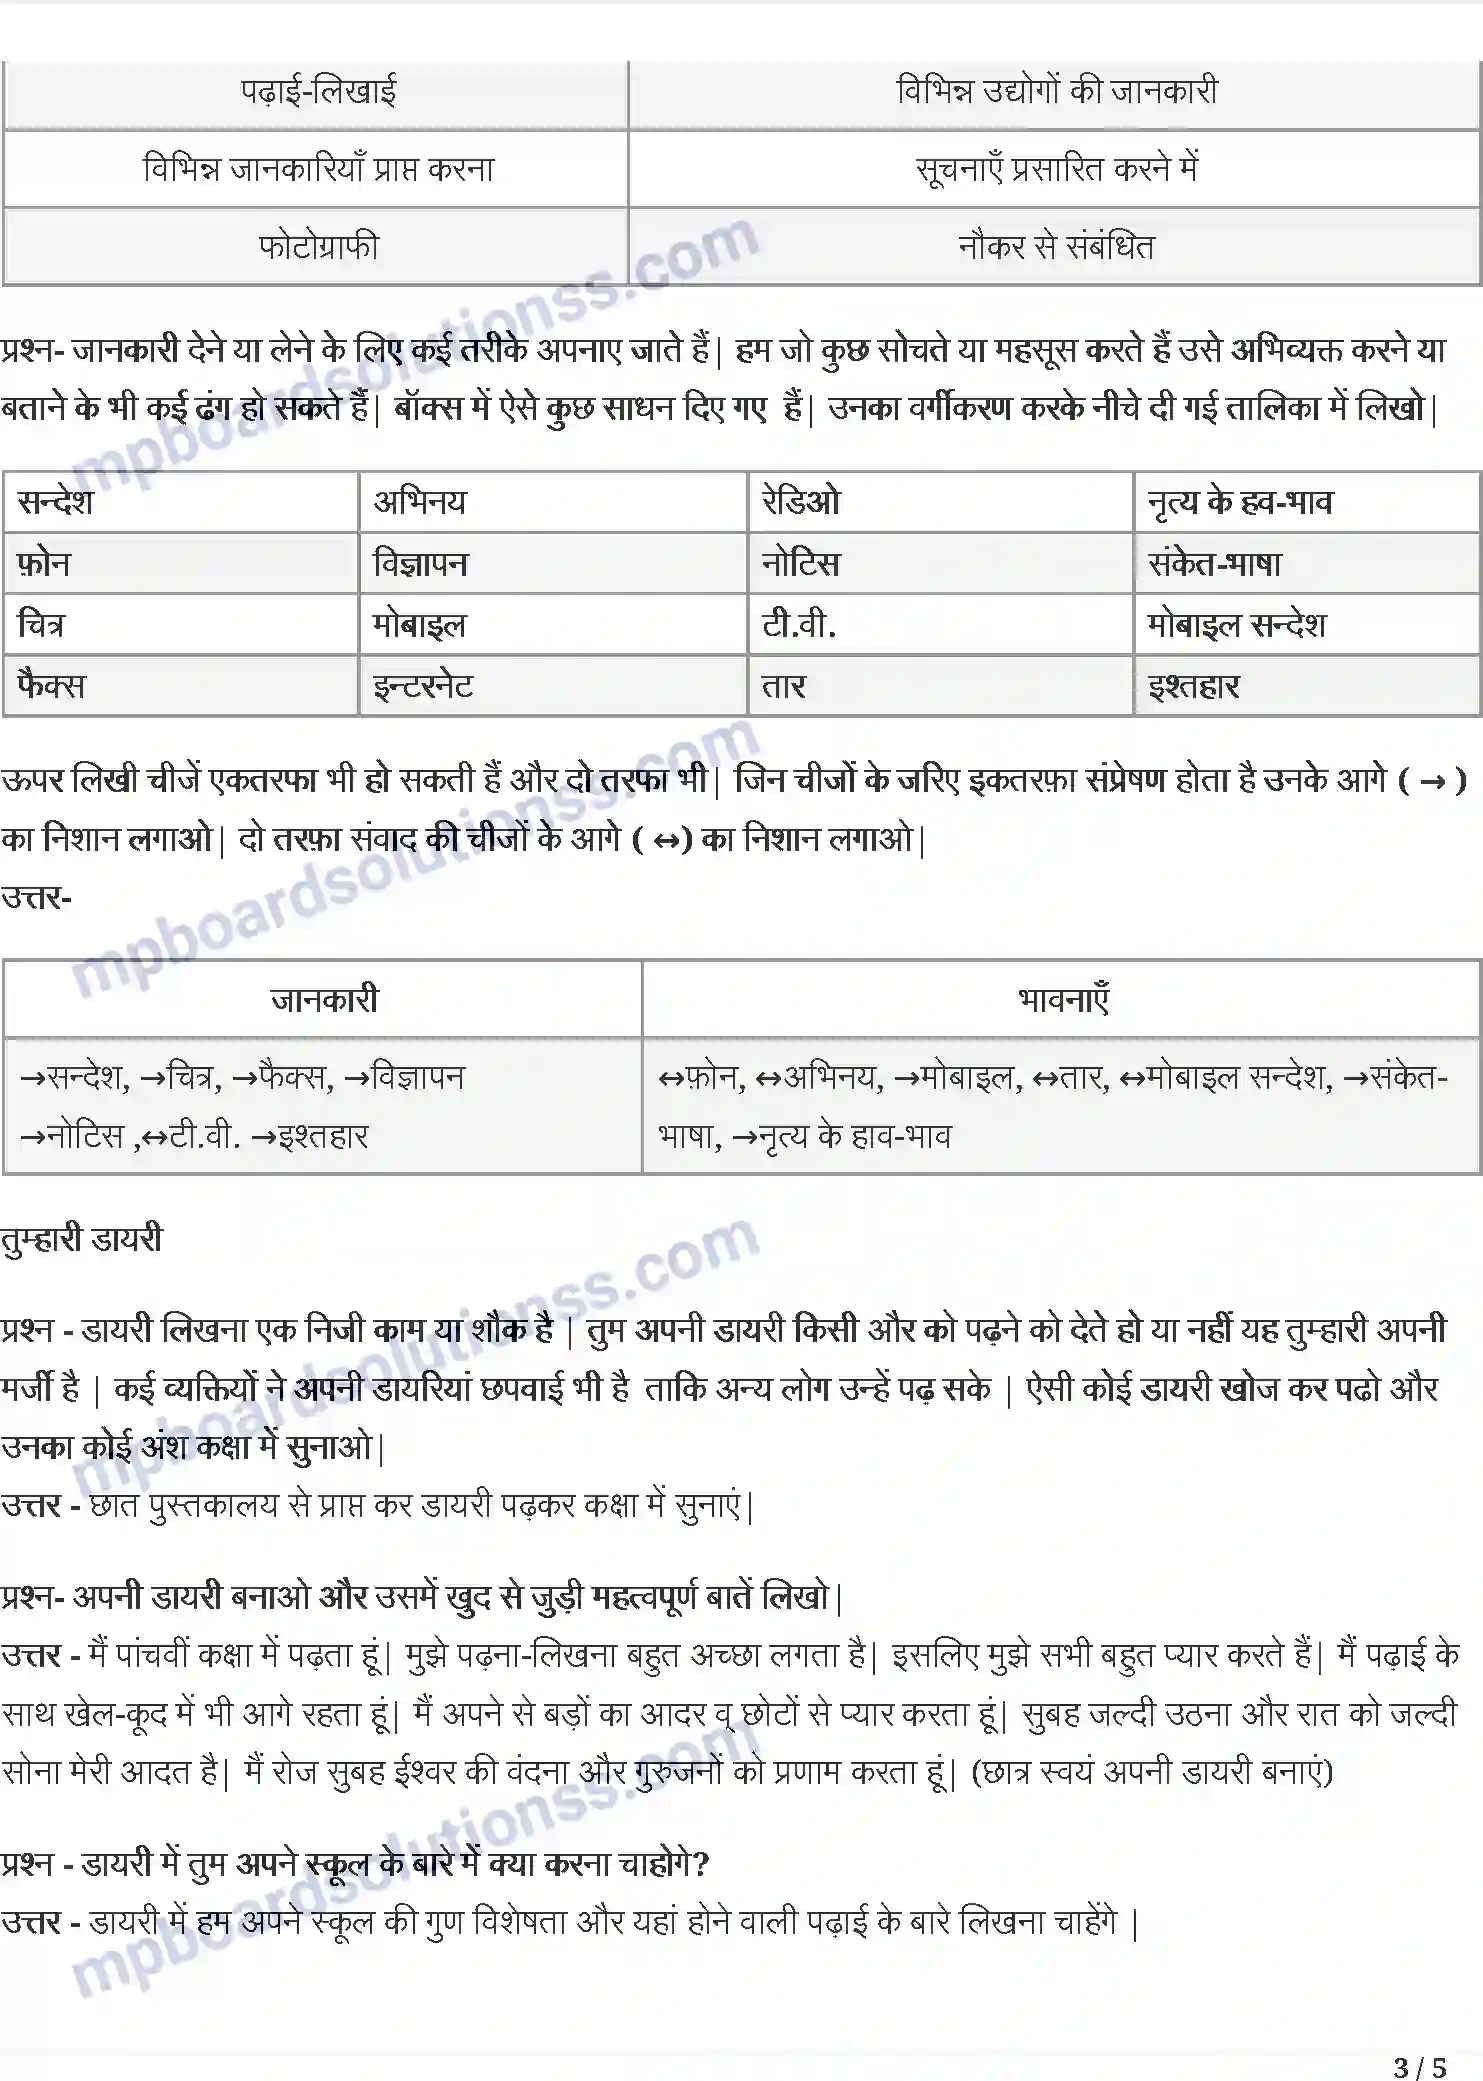 पढ़ाई-लिखाई विभिन्न उद्योगों की जानकारी
विभिन्न जानकारियाँ प्राप्त करना सूचनाएँ प्रसारित करने में
फोटोग्राफी नौकर से संबंधित
प्रश्न- जानकारी देने या लेने के लिए कई तरीके अपनाए जाते हैं| हम जो कुछ सोचते या महसूस करते हैं उसे अभिव्यक्त करने या
बताने के भी कई ढंग हो सकते हैं| बॉक्स में ऐसे कुछ साधन दिए गए हैं| उनका वर्गीकरण करके नीचे दी गई तालिका में लिखो|
सन्देश अभिनय रेडिओ नृत्य के हव-भाव
फ़ोन विज्ञापन नोटिस संकेत-भाषा
चित्र मोबाइल टी.वी. मोबाइल सन्देश
फैक्स इन्टरनेट तार इश्तहार
ऊपर लिखी चीजें एकतरफा भी हो सकती हैं और दो तरफा भी| जिन चीजों के जरिए इकतरफ़ा संप्रेषण होता है उनके आगे ( → )
का निशान लगाओ| दो तरफ़ा संवाद की चीजों के आगे ( ↔) का निशान लगाओ|
उत्तर-
जानकारी भावनाएँ
→सन्देश, →चित्र, →फैक्स, →विज्ञापन ↔फ़ोन, ↔अभिनय, →मोबाइल, ↔तार, ↔मोबाइल सन्देश, →संकेत-
→नोटिस ,↔टी.वी. →इश्तहार भाषा, →नृत्य के हाव-भाव
तुम्हारी डायरी
प्रश्न - डायरी लिखना एक निजी काम या शौक है | तुम अपनी डायरी किसी और को पढ़ने को देते हो या नहीं यह तुम्हारी अपनी
मर्जी है | कई व्यक्तियों ने अपनी डायरियां छपवाई भी है ताकि अन्य लोग उन्हें पढ़ सके | ऐसी कोई डायरी खोज कर पढो और
उनका कोई अंश कक्षा में सुनाओ|
उत्तर - छात पुस्तकालय से प्राप्त कर डायरी पढ़कर कक्षा में सुनाएं|
प्रश्न- अपनी डायरी बनाओ और उसमें खुद से जुड़ी महत्वपूर्ण बातें लिखो|
उत्तर - मैं पांचवीं कक्षा में पढ़ता हूं| मुझे पढ़ना-लिखना बहुत अच्छा लगता है| इसलिए मुझे सभी बहुत प्यार करते हैं| मैं पढ़ाई के
साथ खेल-कूद में भी आगे रहता हूं| मैं अपने से बड़ों का आदर व् छोटों से प्यार करता हूं| सुबह जल्दी उठना और रात को जल्दी
सोना मेरी आदत है| मैं रोज सुबह ईश्वर की वंदना और गुरुजनों को प्रणाम करता हूं| (छात्र स्वयं अपनी डायरी बनाएं)
प्रश्न - डायरी में तुम अपने स्कूल के बारे में क्या करना चाहोगे?
उत्तर - डायरी में हम अपने स्कूल की गुण विशेषता और यहां होने वाली पढ़ाई के बारे लिखना चाहेंगे |
mpboardsolutionss.com
mpboardsolutionss.com
mpboardsolutionss.com
mpboardsolutionss.com
3 / 5